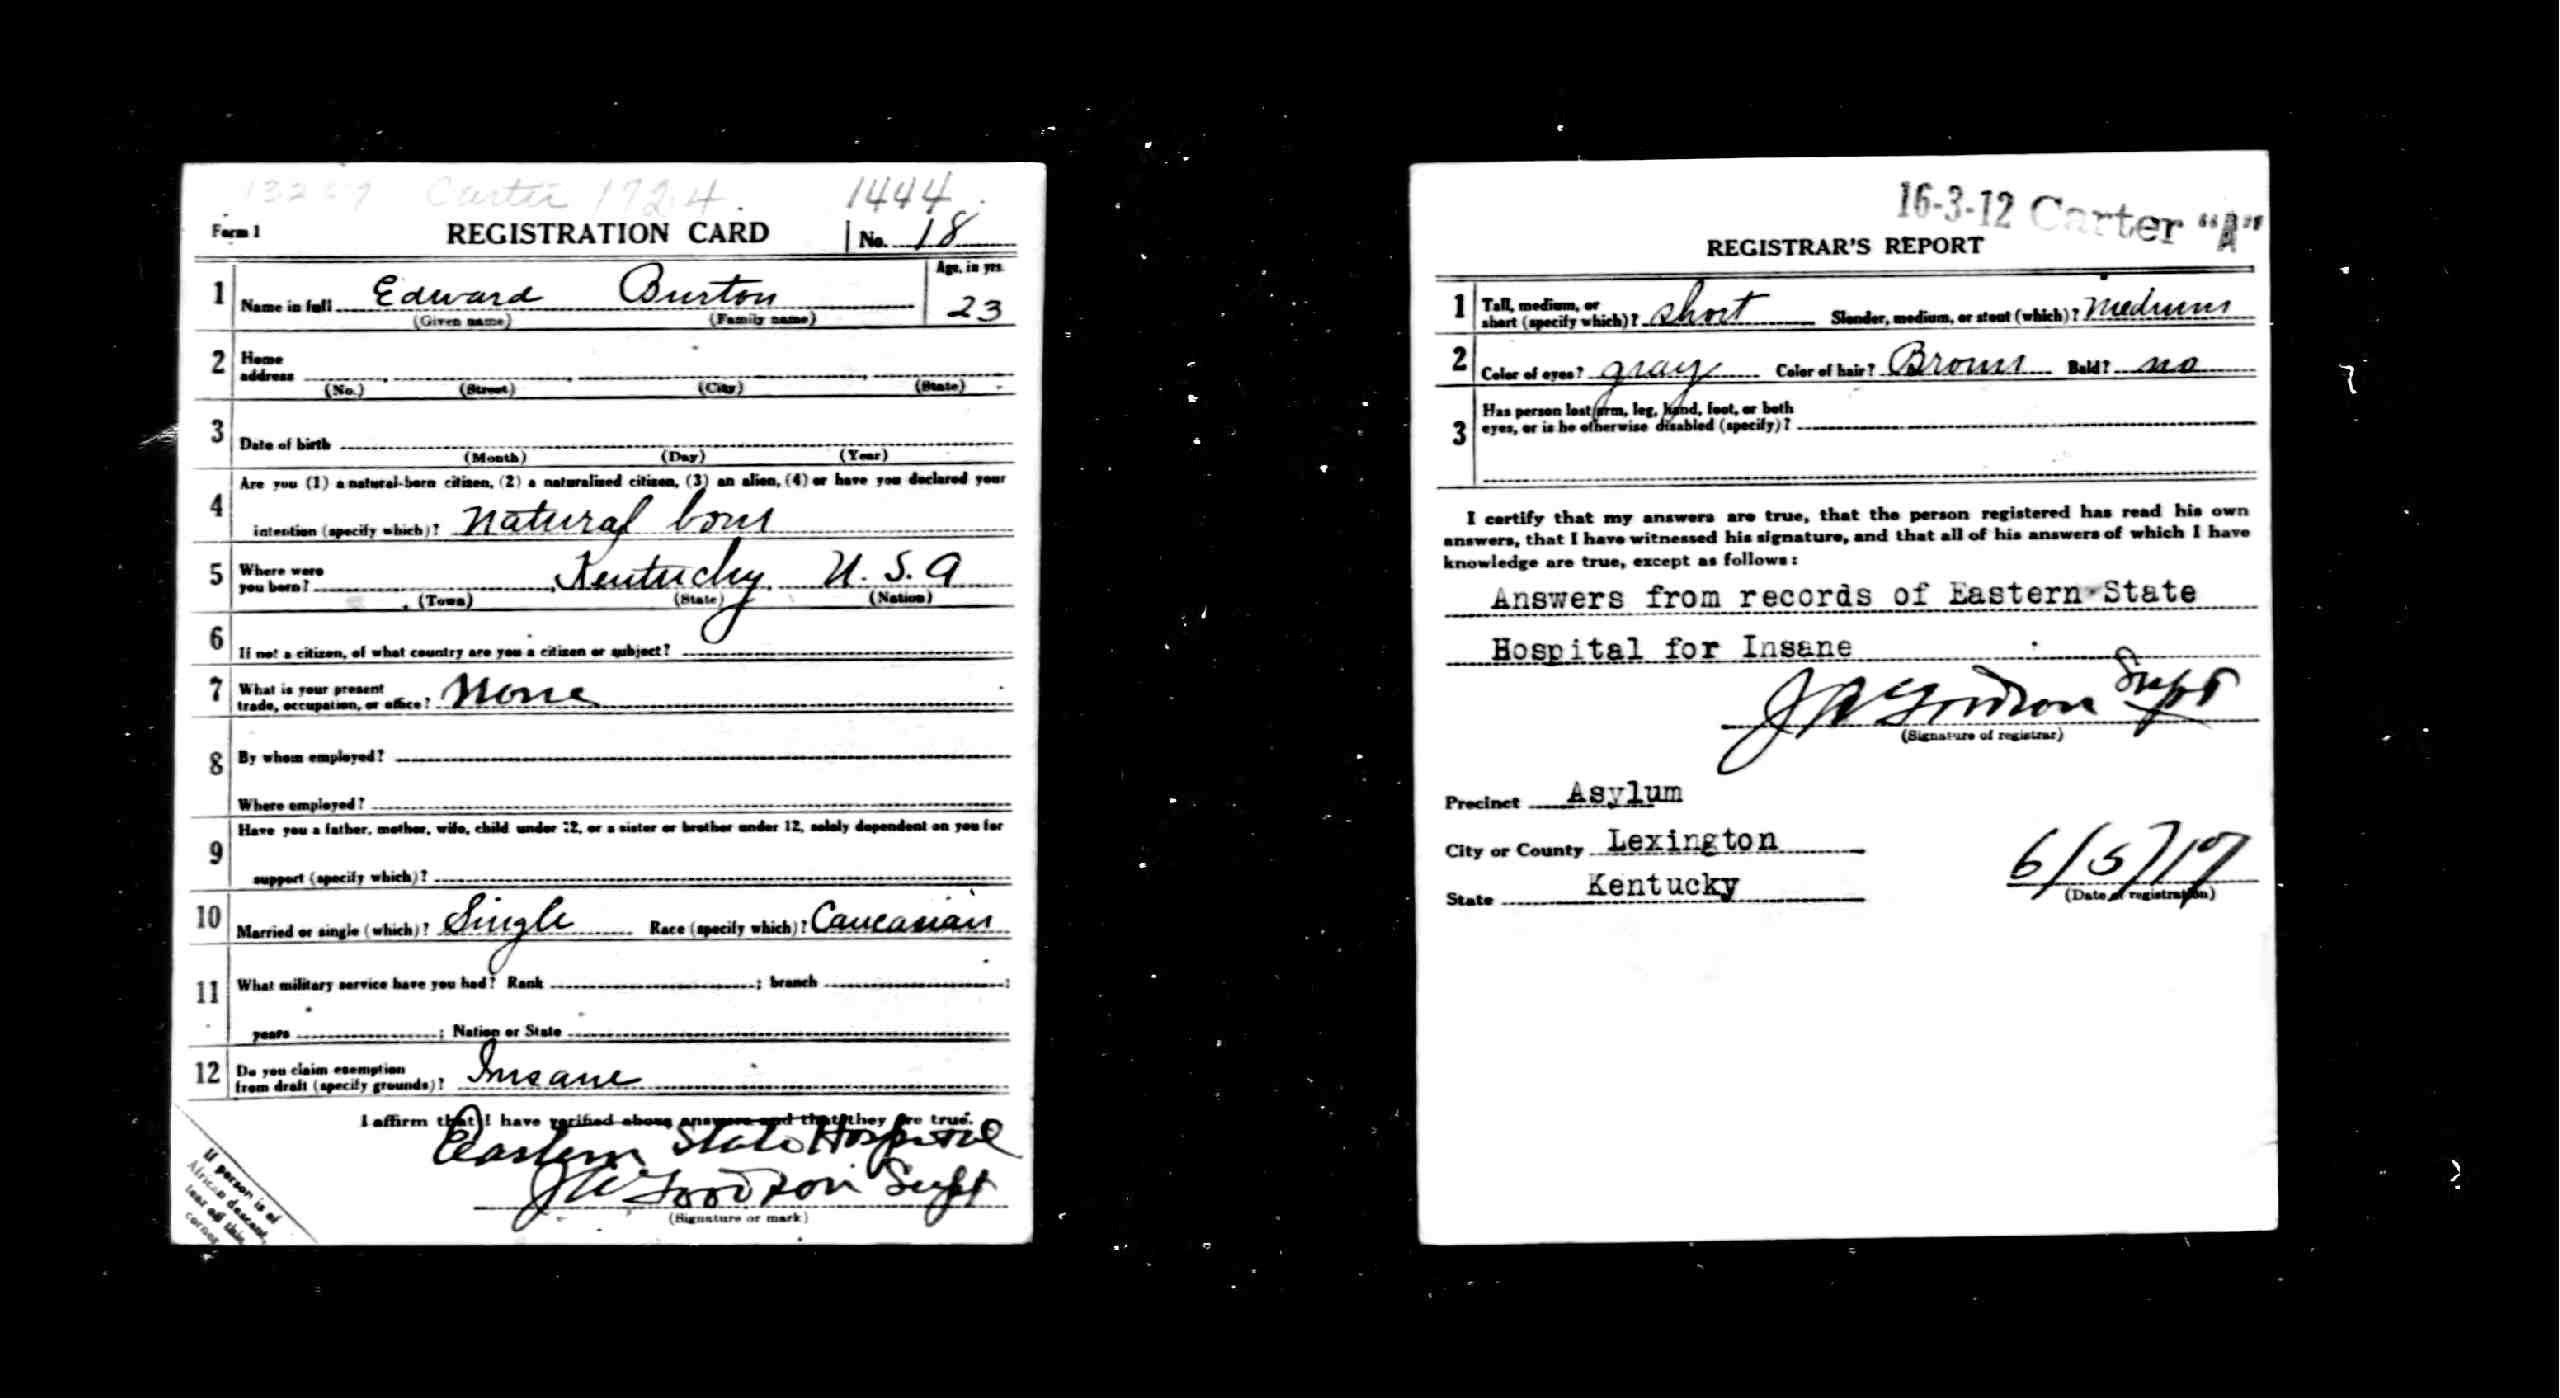 Carter 172 4 1444
Form 1 REGISTRATION CARD No. 18
1 Name in full Edward Burton Age, in yrs. 23
(Given name) (Family name)
2 Home
address
(No.) (Street) (City) (State)
3 Date of birth
(Month) (Day) (Year)
4 Are you (1) a natural-born citizen, (2) a naturalized citizen, (3) an alien, (4) or have you declared your
intention (specify which)? natural born
5 Where were
you born? Kentucky U. S. A
(Town) (State) (Nation)
6 If not a citizen, of what country are you a citizen or subject?
7 What is your present
trade, occupation, or office? None
8 By whom employed?
Where employed?
9 Have you a father, mother, wife, child under 12, or a sister or brother under 12, solely dependent on you for
support (specify which)?
10 Married or single (which)? Single Race (specify which)? Caucasian
11 What military service have you had? Rank ; branch ;
years ; Nation or State
12 Do you claim exemption
from draft (specify grounds)? Insane
I affirm that I have verified above answers and that they are true.
Eastern State Hospital
J A Goodson Supt
(Signature or mark)
If person is of
African descent,
tear off this
corner
16-3-12 Carter "A"
REGISTRAR'S REPORT
1 Tall, medium, or
short (specify which)? short Slender, medium, or stout (which)? medium
2 Color of eyes? gray Color of hair? Brown Bald? no
3 Has person lost arm, leg, hand, foot, or both
eyes, or is he otherwise disabled (specify)?
I certify that my answers are true, that the person registered has read his own
answers, that I have witnessed his signature, and that all of his answers of which I have
knowledge are true, except as follows:
Answers from records of Eastern State
Hospital for Insane
J A Goodson Supt
(Signature of registrar)
Precinct Asylum
City or County Lexington
State Kentucky
6/5/17
(Date of registration)